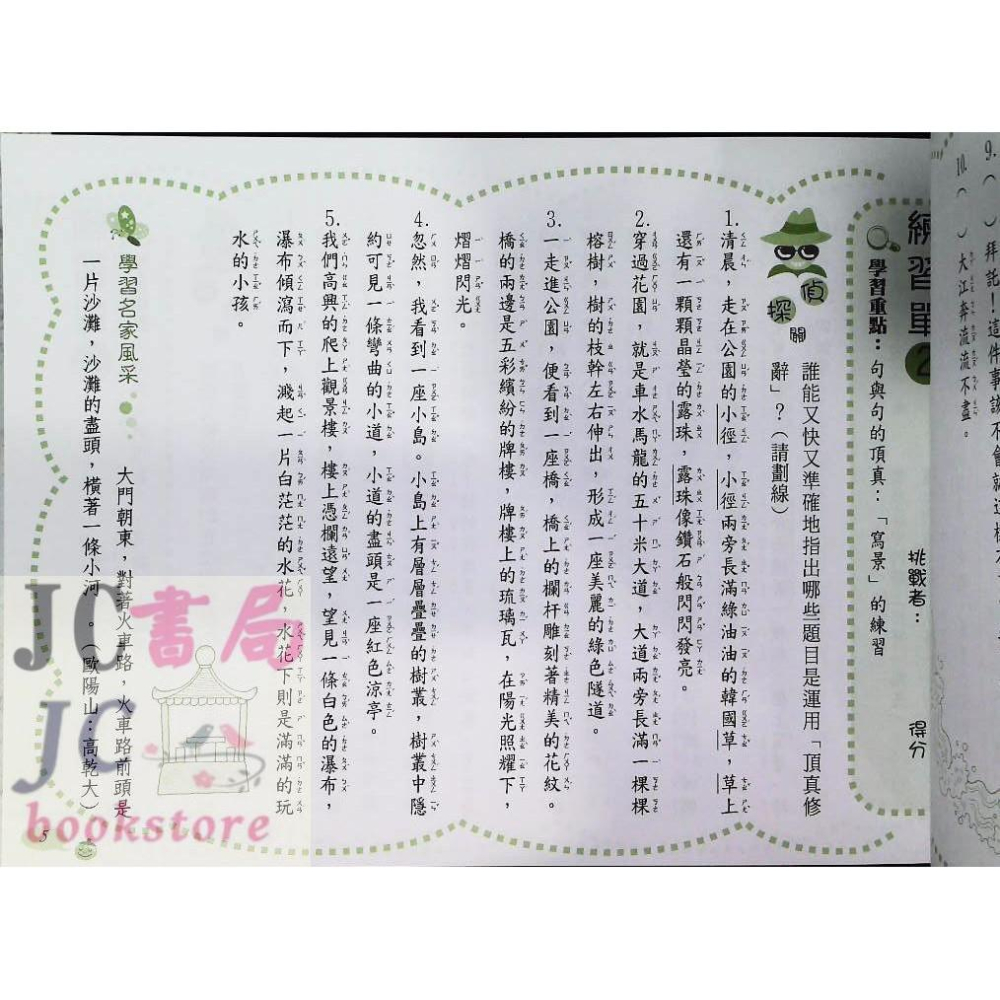 9.（　）拜託！這件事
10.（　）大江奔流流不盡。
練習單2
挑戰者：
得分
學習重點：句與句的頂真：「寫景」的練習
偵探
誰能又快又準確地指出哪些題目是運用「頂真修
辭」？（請劃線）
1.清晨，走在公園的小徑，小徑兩旁長滿綠油油的韓國草，草上
還有一顆顆晶瑩的露珠，露珠像鑽石般閃閃發亮。
2.穿過花園，就是車水馬龍的五十米大道，大道兩旁長滿一棵棵
榕樹，樹的枝幹左右伸出，形成一座美麗的綠色隧道。
3.一走進公園，便看到一座橋，橋上的欄杆雕刻著精美的花紋。
橋的兩邊是五彩繽紛的牌樓，牌樓上的琉璃瓦，在陽光照耀下，
熠熠閃光。
4.忽然，我看到一座小島。小島上有層層疊疊的樹叢，樹叢中隱
約可見一條彎曲的小道，小道的盡頭是一座紅色涼亭。
5.我們高興的爬上觀景樓，樓上憑欄遠望，望見一條白色的瀑布，
瀑布傾瀉而下，濺起一片白茫茫的水花，水花下則是滿滿的玩
水的小孩。
學習名家風采
大門朝東，對著火車路，火車路前頭是
一片沙灘，沙灘的盡頭，橫著一條小河。（歐陽山：高乾大）
5
JC書局
JC
bookstore